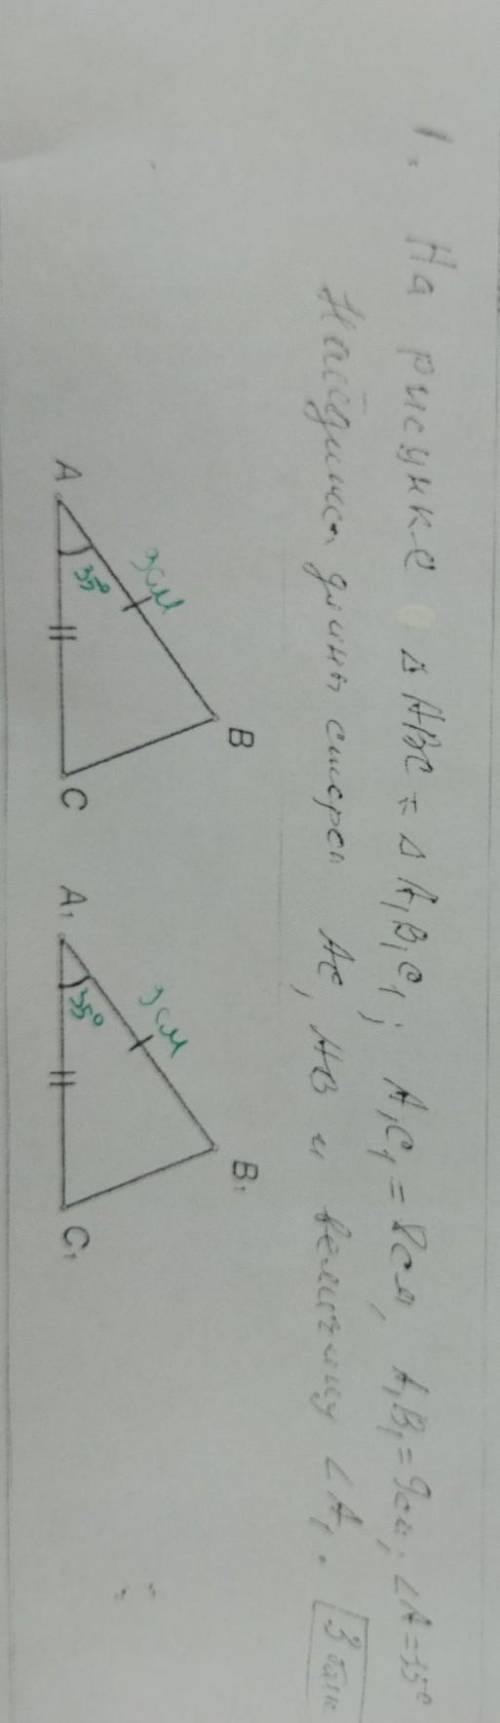 1. На рисунке ΔABC = ΔA₁B₁C₁; A₁C₁ = 8см, A₁B₁ = 9см, ∠A = 35°
Найдите длины сторон AC, AB и величину ∠A₁. 3 бал
B B₁
9см 9см
35° 35°
A C A₁ C₁